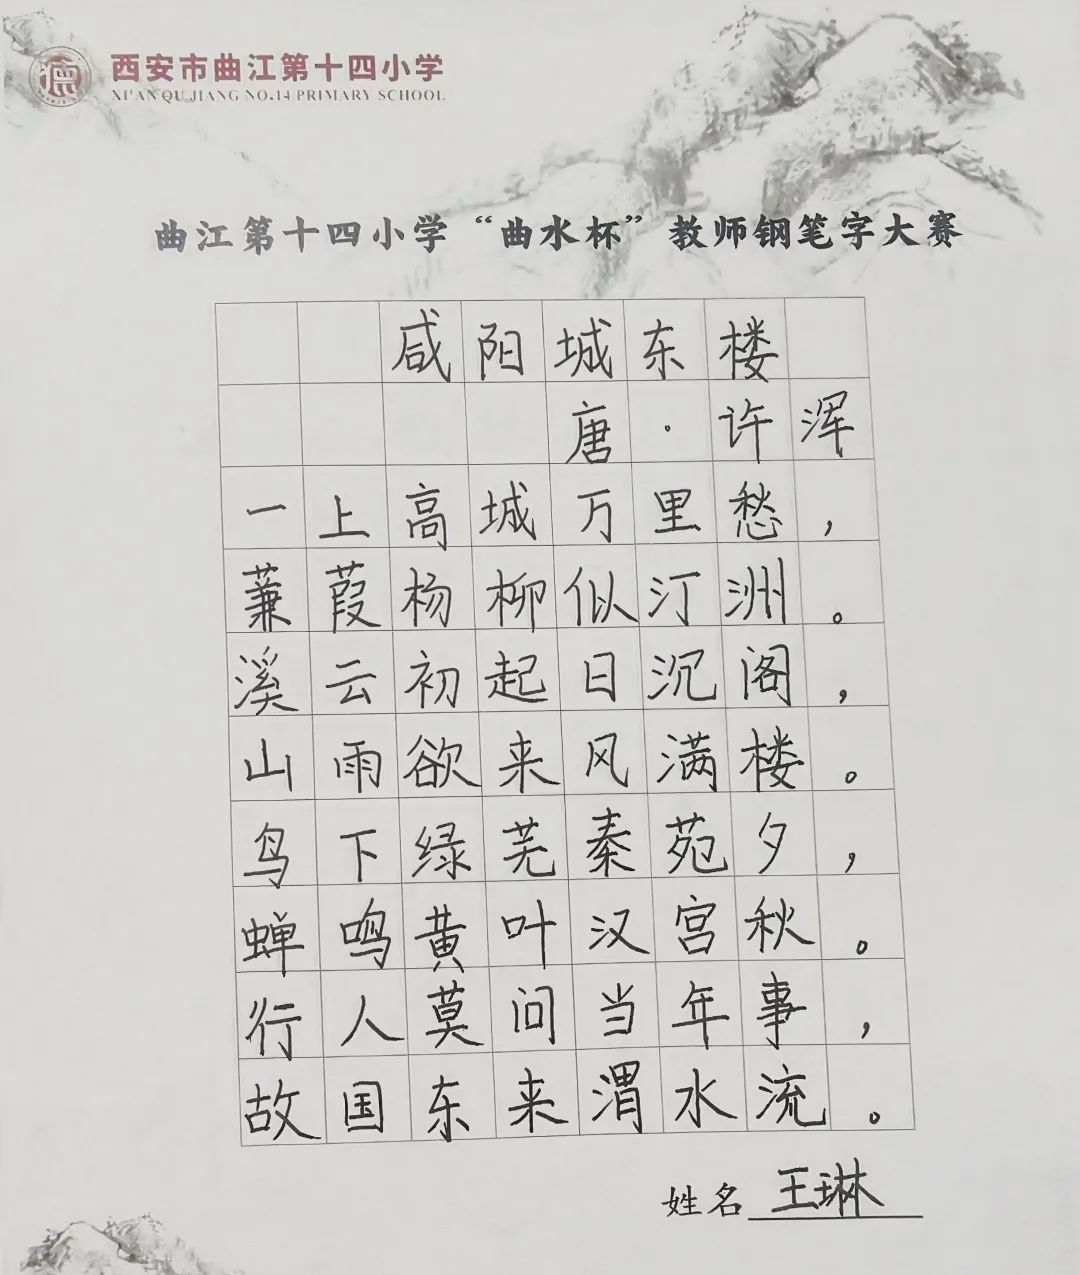 西安市曲江第十四小学
XI'AN QU JIANG NO.14 PRIMARY SCHOOL
曲江第十四小学“曲水杯”教师钢笔字大赛
咸阳城东楼
唐·许浑
一上高城万里愁，
蒹葭杨柳似汀洲。
溪云初起日沉阁，
山雨欲来风满楼。
鸟下绿芜秦苑夕，
蝉鸣黄叶汉宫秋。
行人莫问当年事，
故国东来渭水流。
姓名 王琳